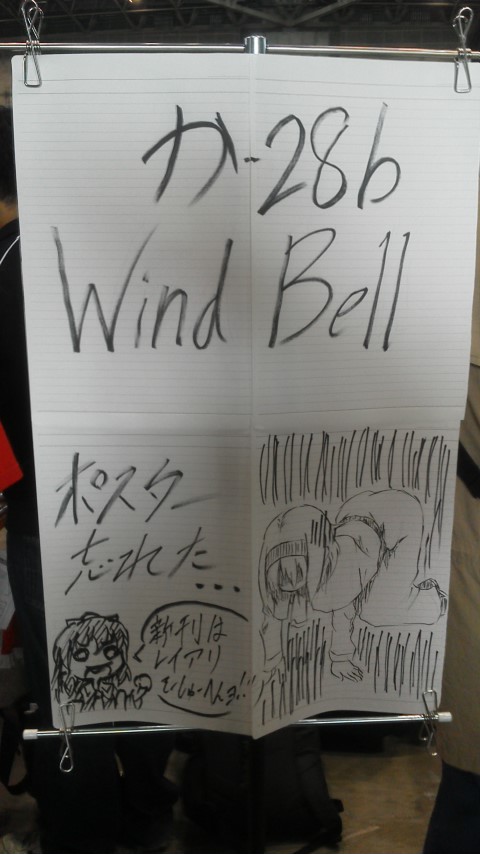 か-28b
Wind Bell
ポスター
忘れた...
新刊は
レイアリ